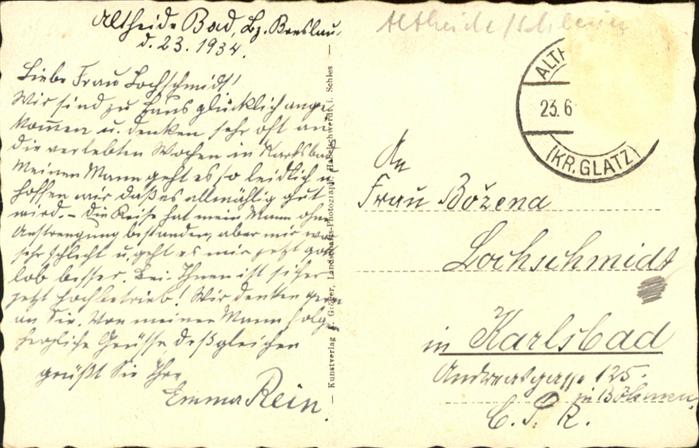 Altheide Bad, Bz. Breslau.
d. 23. 1934.
Liebe Frau Lochschmidt!
Wir sind zu Haus glücklich ange-
kommen u. denken sehr oft an
die verlebten Wochen in Karlsbad
Meinen Mann geht es so leidlich u.
hoffen wir daß es allmählig gut
wird. – Die Reise hat mein Mann ohne
Anstrengung bestanden, aber mir war
sehr schlecht u. geht es mir jetzt gott
lob besser. Bei Ihnen ist sicher
jetzt Hochbetrieb! Wir denken gern
an Sie. Von meinen Mann
herzliche Grüsse desgleichen
grüßt Sie Ihre
Emma Rein.
– Kunstverlag Groger, Landschafts-Photograph, Habelschwerdt i. Schles –
Altheide/Schlesien
ALTH
23.6
(KR. GLATZ)
An
Frau Božena
Lochschmidt
in Karlsbad
Andreasgasse 125.
in Böhmen,
C. S. R.